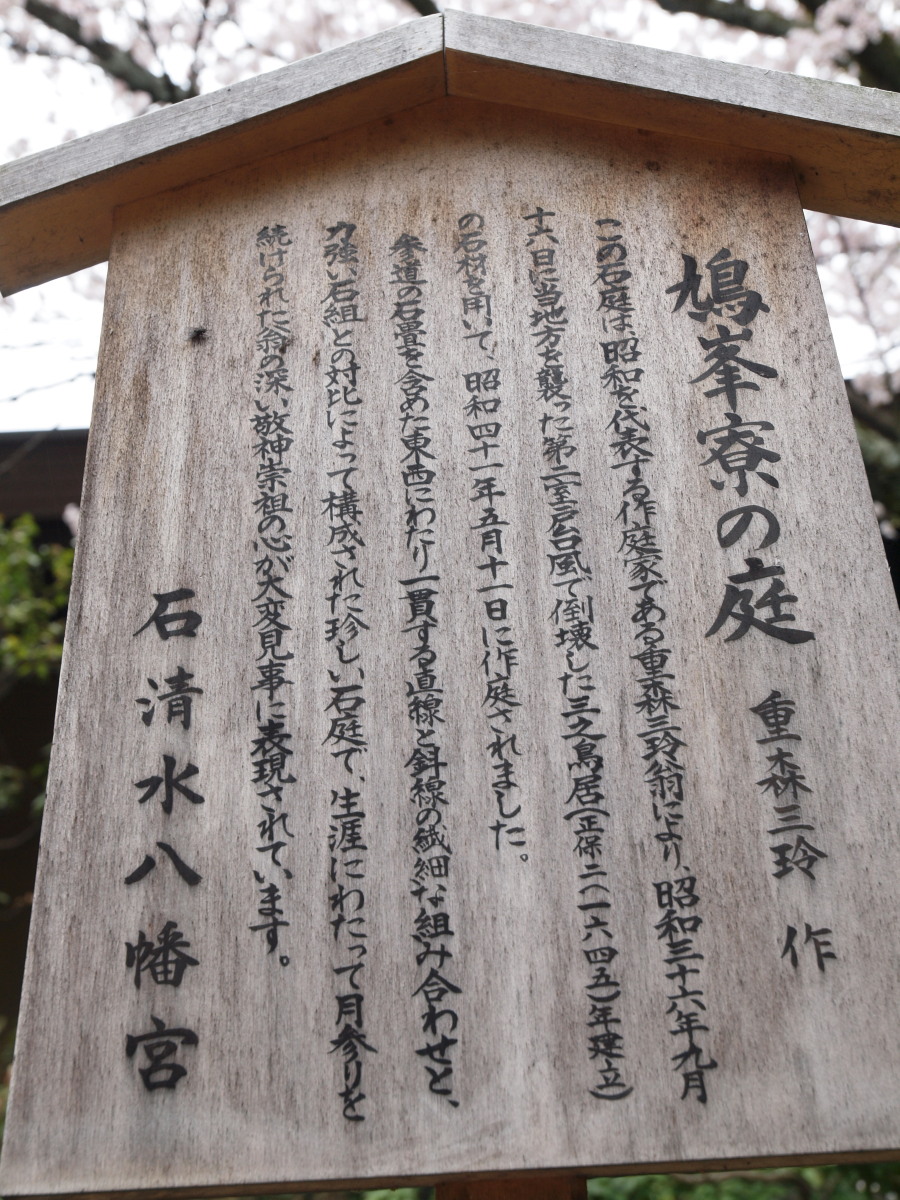 鳩峯寮の庭　重森三玲　作
この石庭は、昭和を代表する作庭家である重森三玲翁により、昭和三十六年九月
十六日に当地方を襲った第二室戸台風で倒壊した三之鳥居(正保二(一六四五)年建立)
の石材を用いて、昭和四十一年五月十一日に作庭されました。
参道の石畳を含めた東西にわたり一貫する直線と斜線の繊細な組み合わせと、
力強い石組との対比によって構成された珍しい石庭で、生涯にわたって月参りを
続けられた翁の深い敬神崇祖の心が大変見事に表現されています。
石清水八幡宮